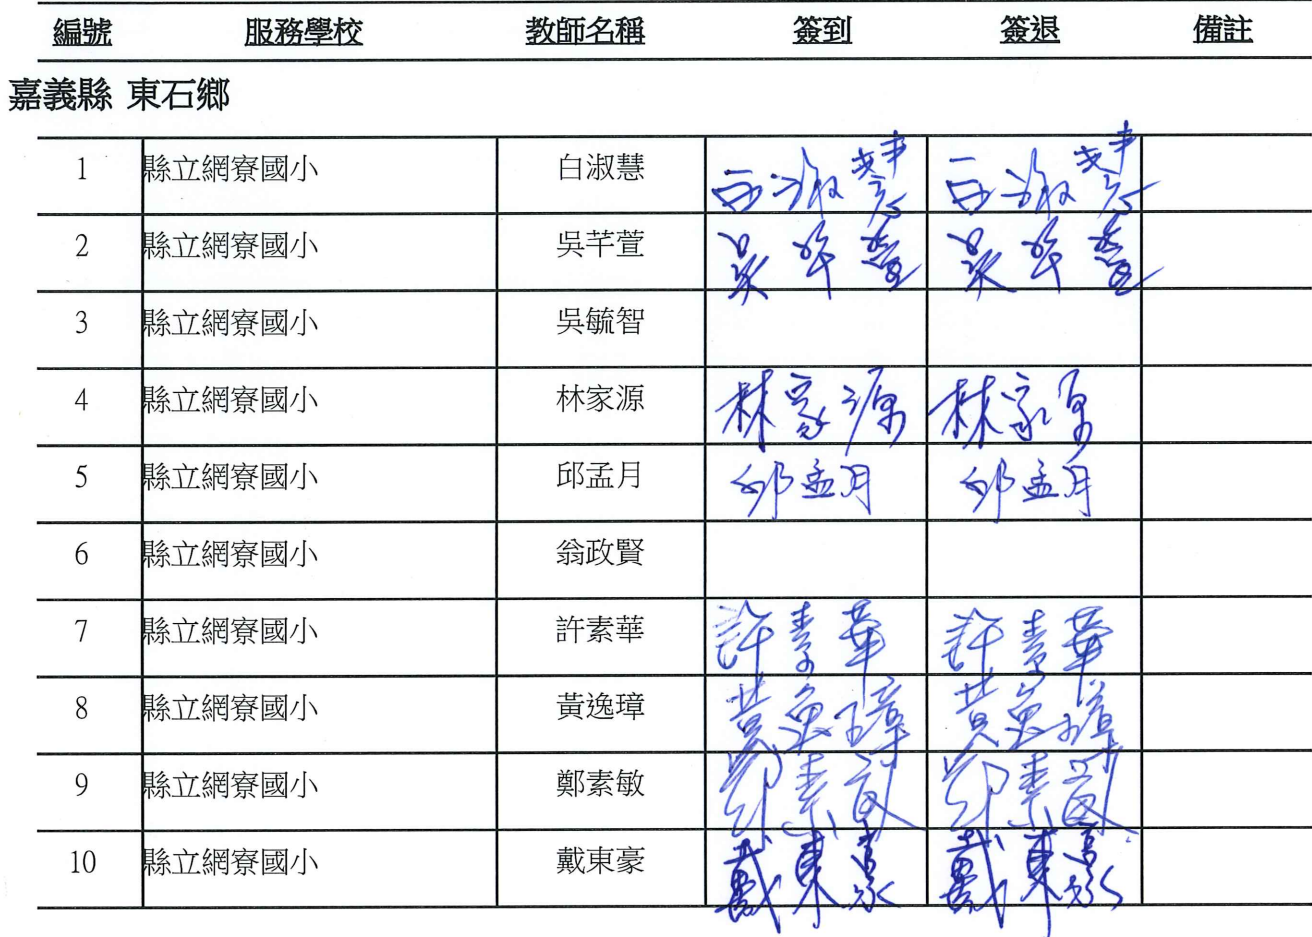 編號 服務學校 教師名稱 簽到 簽退 備註
嘉義縣 東石鄉
1 縣立網寮國小 白淑慧 白淑慧 白淑慧
2 縣立網寮國小 吳芊萱 吳芊萱 吳芊萱
3 縣立網寮國小 吳毓智
4 縣立網寮國小 林家源 林家源 林家源
5 縣立網寮國小 邱孟月 邱孟月 邱孟月
6 縣立網寮國小 翁政賢
7 縣立網寮國小 許素華 許素華 許素華
8 縣立網寮國小 黃逸璋 黃逸璋 黃逸璋
9 縣立網寮國小 鄭素敏 鄭素敏 鄭素敏
10 縣立網寮國小 戴東豪 戴東豪 戴東豪